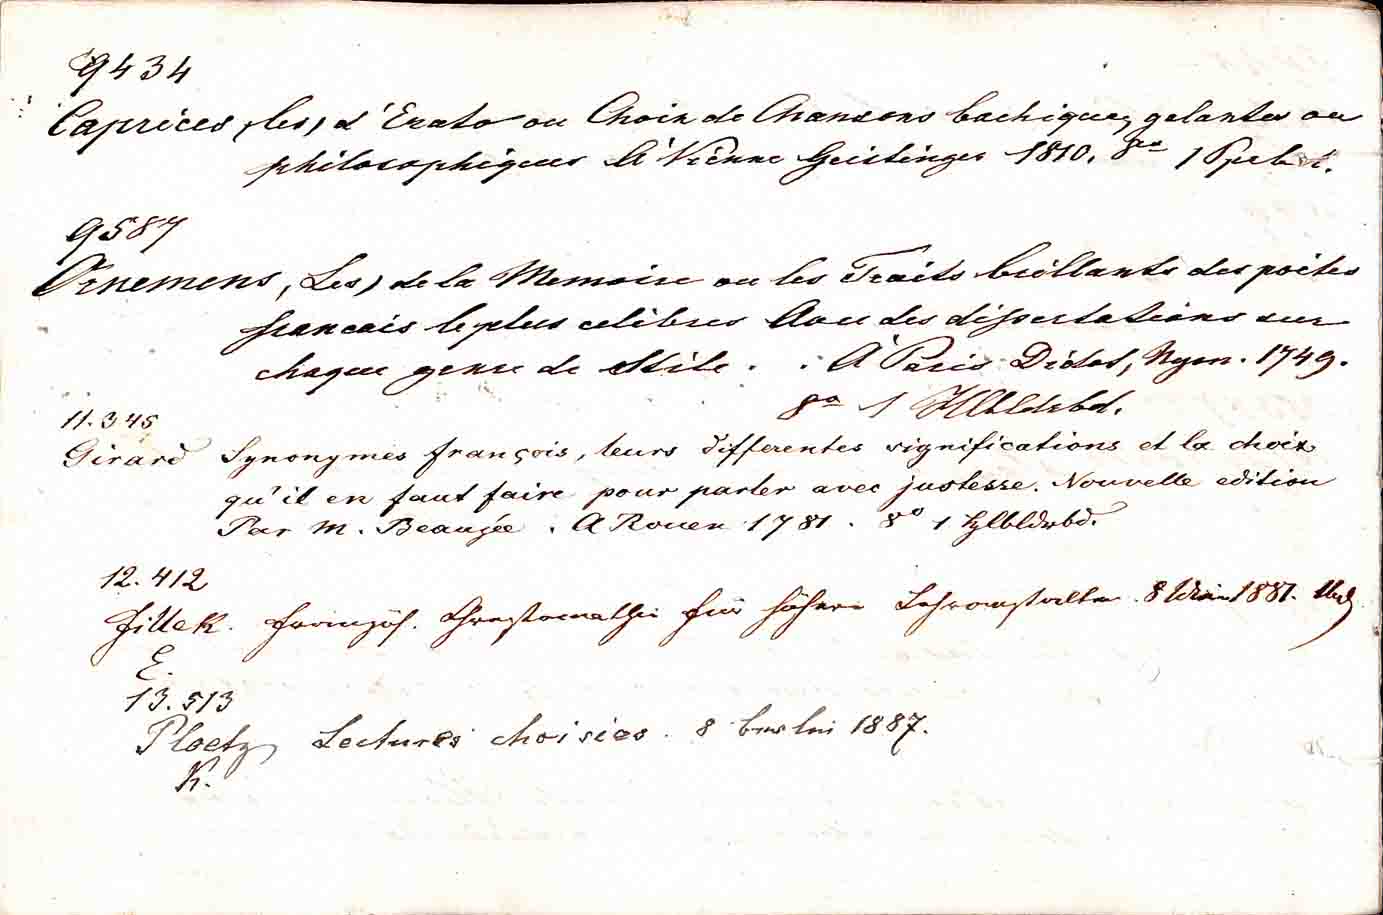 9434
Caprices, (les) d'Erato ou Choix de Chansons bachiques, galantes ou
philosophiques à Vienne Geistinger 1810. 8vo 1
9587
Ornemens, Les) de la Memoire ou les Traits brillants des poètes
francais le plus celèbres Avec des dissertations sur
chaque genre de Stile. A Paris Didot, Nyon. 1749.
8vo 1 Hlbldrbd.
11.345
Girard Synonymes françois, leurs differentes significations et la choix
qu'il en faut faire pour parler avec justesse. Nouvelle edition
Par M. Beauzée. A Rouen 1781. 8o 1 Hlbldrbd.
12.412
Filek. französ. Chrestomathie für höhere Lehranstalten. 8 Wien 1881.
E.
13.513
Ploetz, Lectures choisies. 8 Berlin 1887.
K.